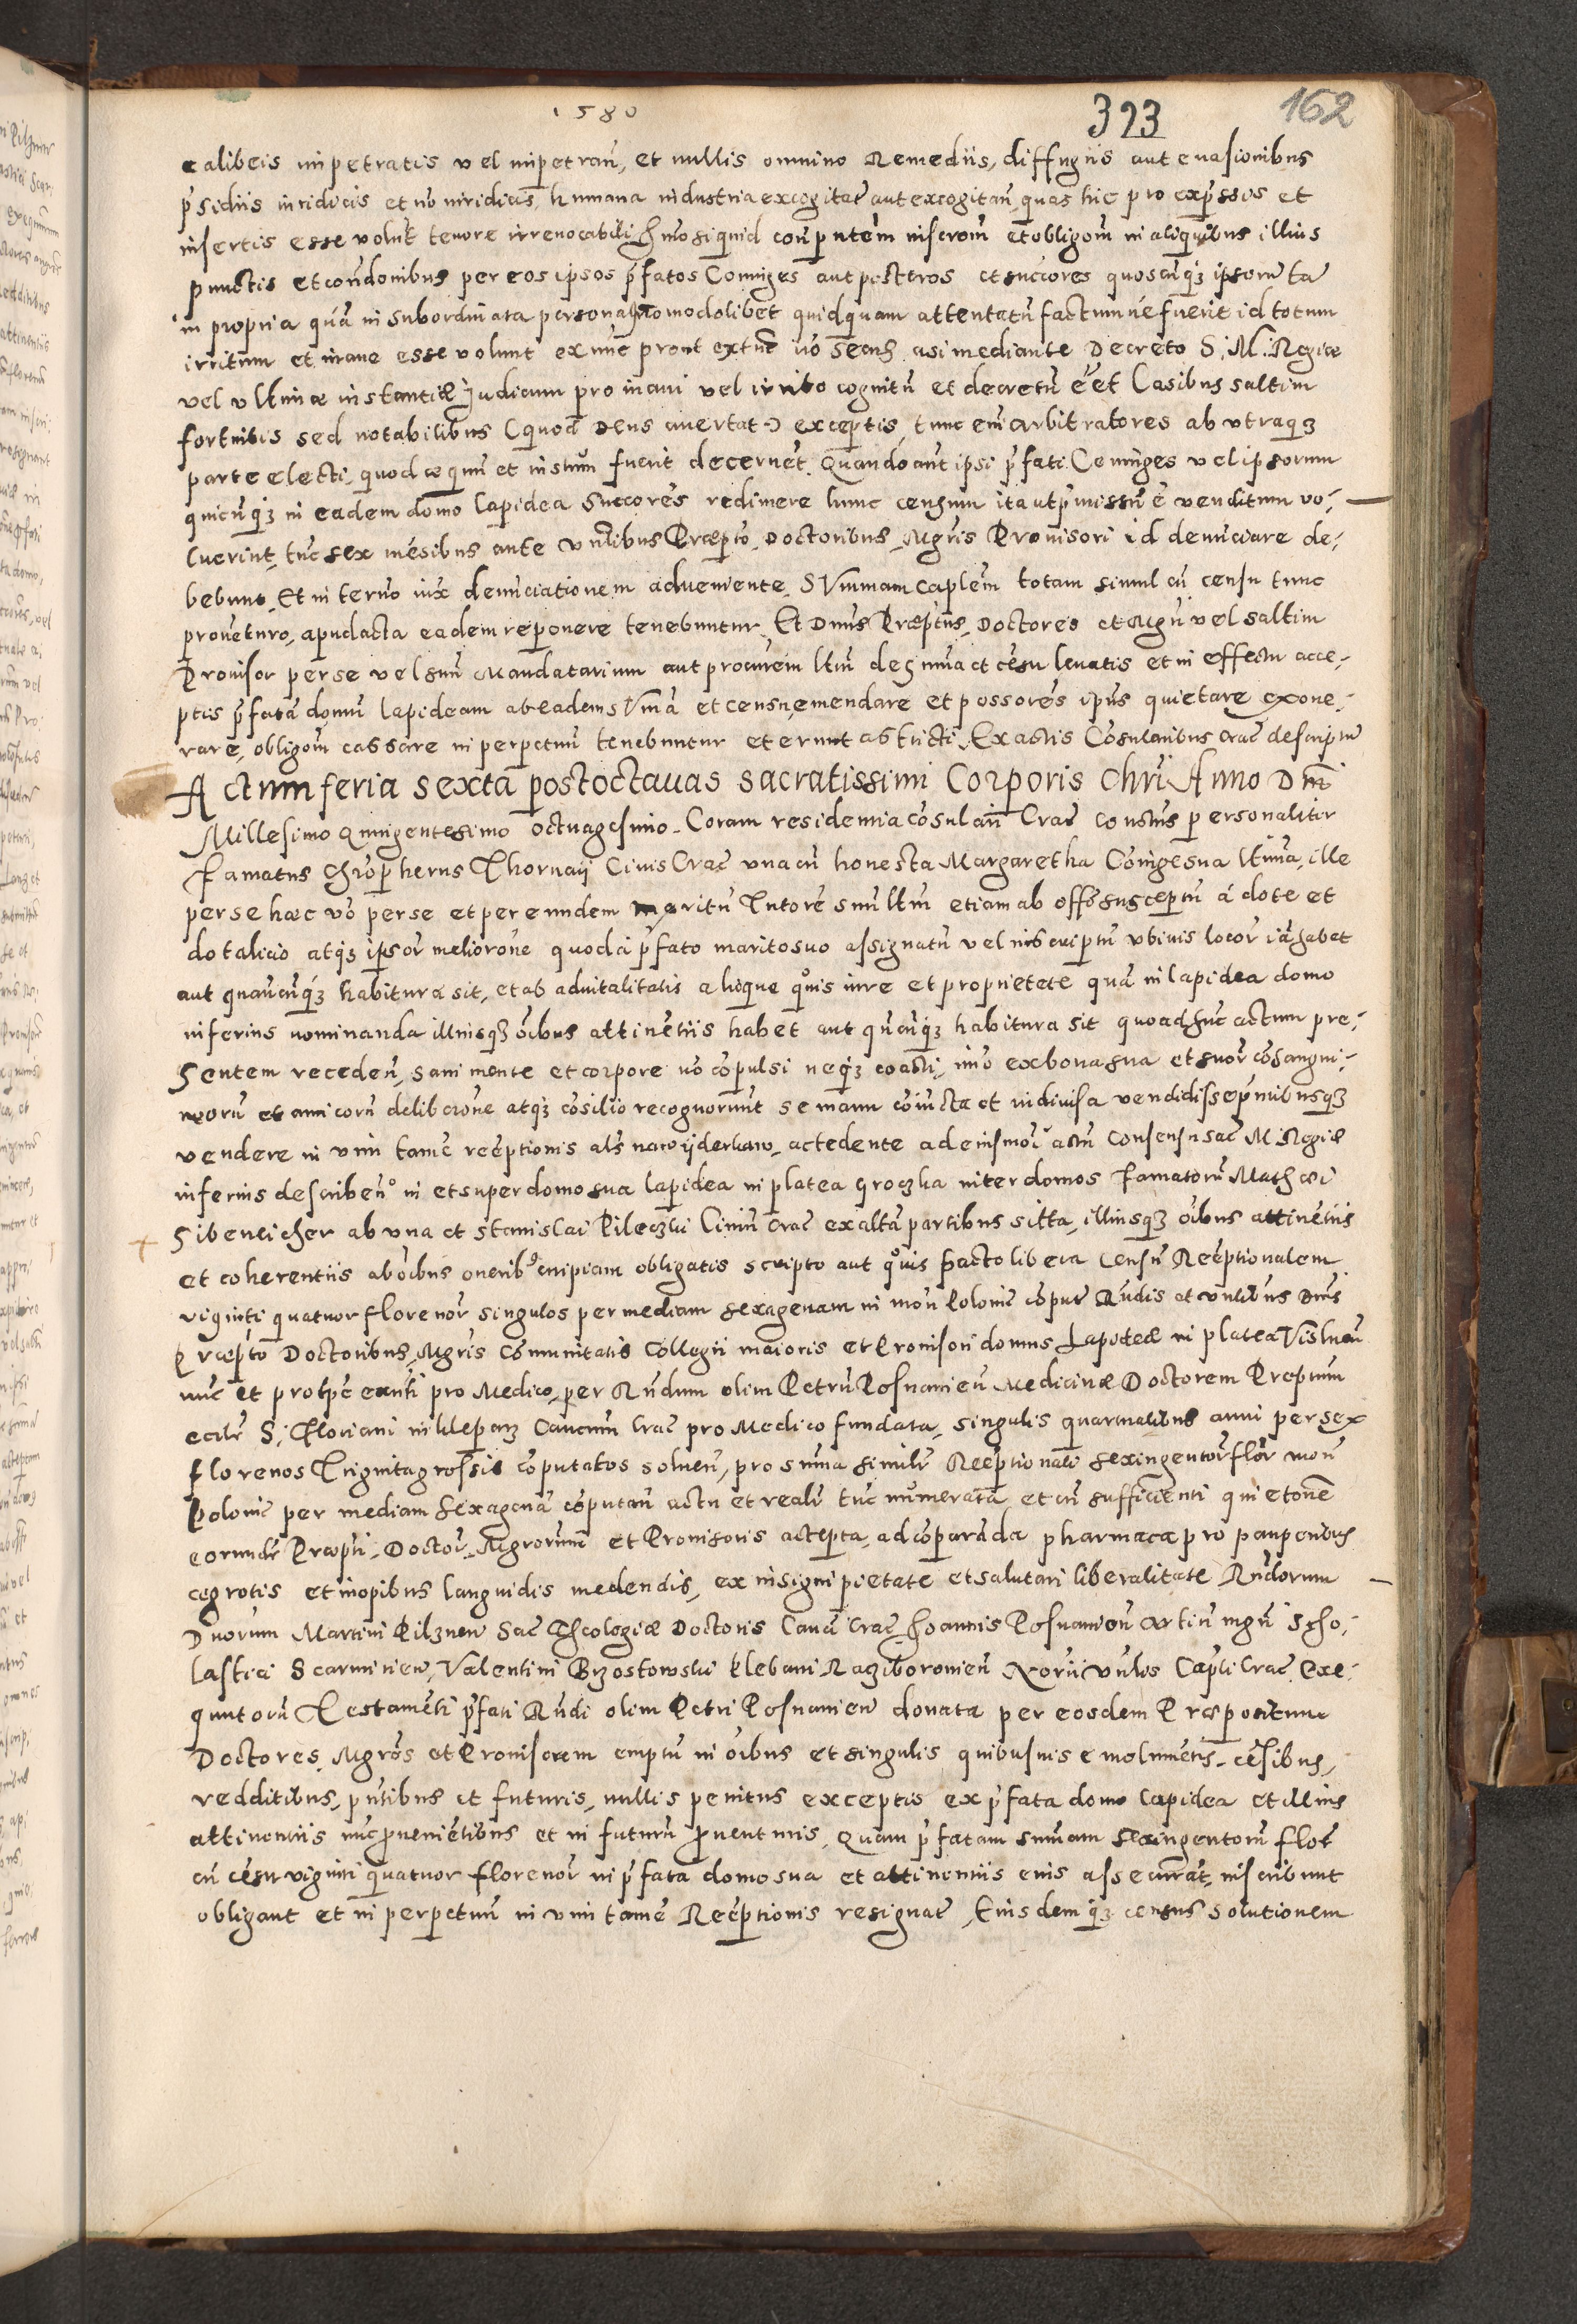 1580
323
162
calibcis impetratis vel impetran̄, et nullis omnino Remediis, diffugiis aut euasionibus
p̄sidiis iuridicis et nō iuridicis, humana industria excogitat̄ aut excogitan̄, quas hic pro exp̄ssis et
insertis esse volunt tenore irreuocabili, si quid compūtem inscrōm et obligōm in aliquibus illius
punctis et condōnibus per eos ipsos p̄fatos Coniuges aut posteros et succores quoscūq3 ipsorū ta
in propria quā in subordinata persona quomodolibet quidquam attentatū factumue fuerit id totum
irritum et inane esse volunt ex nūc prout ex tūc acsi mediante Decreto S. M. Regiæ
vel vltimæ instantiæ Judicum pro inani vel irrito cognitū et decretū eēt Casibus saltim
fortuitis sed notabilibus (quod Deus auertat) exceptis, tunc em̄ arbitratores ab vtraq3
parte electi, quod æquū et iustum fuerit decernēt. Quando aut̄ ipsi p̄fati Coniuges vel ipsorum
quicūq3 in eadem domo lapidea Succorēs redimere hunc censum ita ut p̄missū ē venditum vo-
luerint, tūc sex mēsibus ante Præpto, Doctoribus, Mgris Prouisori id denūciare de-
bebunt. Et in termō iux̄ denūciationem adueniente, Summam caplem totam simul cū censu tunc
prouēturo, apud acta eadem reponere tenebuntur. Et Dnus Præptus, Doctores et Mgri vel saltim
Prouisor per se vel suū Mandatarium aut procurem ltim̄ de sūma et cēsu leuatis et in effectu acce-
ptis p̄fatā domū lapideam ab eadem sūmā et censu, emendare et possorēs ipsius quietare exone-
rare, obligōm cassare in perpetuū tenebuntur et erunt astricti. Ex actis Cōsularibus Crac̄ descriptū
Actum feria sexta post octauas sacratissimi Corporis Chri Anno Dni
Millesimo Quingentesimo octuagesimo. Coram residentia cōsulari Crac̄ constitutus personaliter
Famatus Chropherus Thornaij Ciuis Crac̄ vna cū honesta Margaretha Coniuge sua ltima, ille
per se hæc vō per se et per eundem maritū Tutorē suū ltim̄ etiam ab offo susceptū á dote et
dotalicio atq3 ipsor̄ meliorōne quod ei p̄fato marito suo assignatū vel inscriptū vbiuis locor̄ iā habet
aut quancūq3 habitura sit, et ab aduitalitatis alioque quouis iure et proprietate quā in lapidea domo
inferius nominanda illiusq3 oibus attinētiis habet aut qncūq3 habitura sit quoad hūc actum pre-
sentem receden̄, sani mente et corpore nō cōpulsi neq3 coacti, imō ex bona sua et suor̄ cōsangui-
neorū et amicorū deliberōne atq3 cōsilio recognorunt se manu cōiuncta et indiuisa vendidisse pn̄tibusq3
vendere in vim tamē reēptionis als̄ na wyderkaw, accedente ad eiusmōi actū consensu sac̄ M Regiæ
inferius describen̄. in et super domo sua lapidea in platea Groczka inter domos Famatorū Mathæi
Sibeneicher ab vna et Stanislai Pileczki Ciuiū Crac̄ ex altā partibus sitta, illiusq3 oibus attinētiis
et coherentiis ab oībus onerib9 cuipiam obligatis scripto aut quouis pacto libera Censū Reēptionalem
viginti quatuor florenor̄ singulos per mediam sexagenam in mon̄ Polonic̄ cōput̄ Rndis et Dnis
Præpto Doctoribus, Mgris Cōmunitatis Collegii maioris et Prouisori domus Lapideæ in platea Vislnen̄
nūc et pro tp̄e exnti pro Medico, per Rndum olim Petrū Posnanien̄ Medicinæ Doctorem Preptum
ecclæ S. Floriani in Kleparz Canonicum Crac̄ pro Medico fundata, singulis quartualibus anni per sex
florenos Triginta grossis cōputatos soluen̄, pro sūma similr̄ Reēptionali sexingentor̄ flor̄ mon̄
Polonic̄ per mediam sexagenā cōputan̄ actu et realr̄ tūc numerata et cū sufficienti quietōne
eorundē Præpti, Doctor̄, Mgrorum et Prouisoris accepta, ad cōparāda pharmaca pro pauperibus
ægrotis et inopibus languidis medendis, ex insigni pietate et salutari liberalitate Rndorum
Dnorum Martini Pilznen̄ Sac̄ Theologiæ Doctoris Canci Crac̄, Joannis Posnanien̄ artiū mgri Scho-
lastici Scarmirien̄, Valentini Brzostowski Plebani Racziboronien̄ Capli Crac̄ Exe-
quutorū Testamēti p̄fati Rndi olim Petri Posnanien̄ donata per eosdem Præpositum
Doctores, Mgros et Prouisorem emptū in oibus et singulis quibusuis emolumētis, cēsibus,
redditibus, pn̄tibus et futuris, nullis penitus exceptis ex p̄fata domo lapidea et illius
attinentiis nūc proueniētibus et in futurū prouenturis, Quam p̄fatam sūmam sexingentorū flor̄
cū cēsu viginti quatuor florenor̄ in p̄fata domo sua et attinentiis eius assecurāt, inscribunt
obligant et in perpetuū in vim tamē Reēptionis resignāt, Eiusdemq3 census solutionem